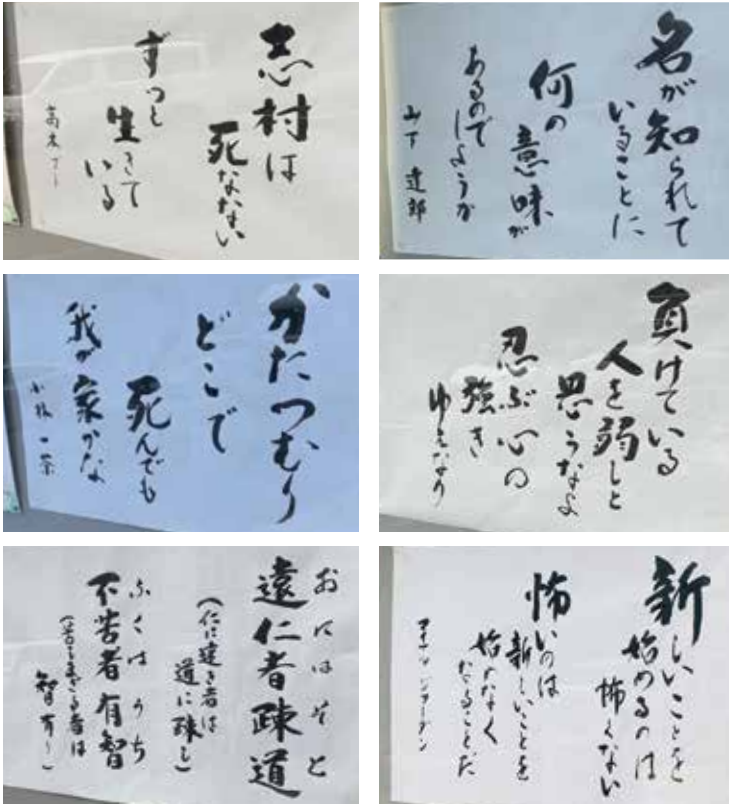 志村は
死なない
ずっと
生きて
いる
高木ブー
名が知られて
いることに
何の
意味が
あるので
しょうか
山下 達郎
かたつむり
どこで
死んでも
我が家かな
小林 一茶
負けている
人を弱しと
思うなよ
忍ぶ心の
強き
ゆえなり
おにはそと
遠仁者疎道
(仁に遠き者は
道に疎し)
ふくはうち
不苦者有智
(苦しまざる者は
智有り)
新しいことを
始めるのは
怖くない
怖いのは
新しいことを
始めなく
なることだ
マイケル ジョーダン